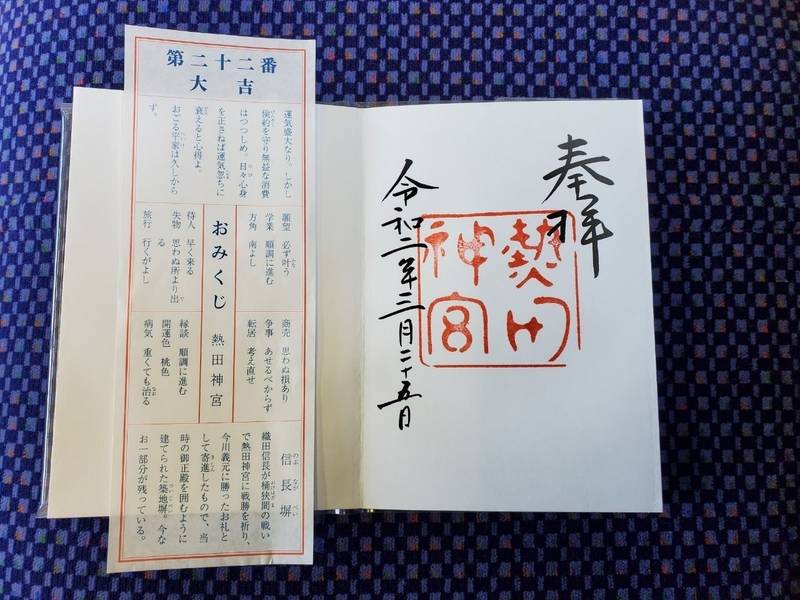 第二十二番
大吉
運気盛大なり。しかし
倹約を守り無益な消費
はつつしめ。日々心身
を正さねば運気忽ちに
衰えると心得よ。
おごる平家は久しから
ず。
願望 必ず叶う
学業 順調に進む
方角 南よし
商売 思わぬ損あり
争事 あせるべからず
転居 考え直せ
おみくじ 熱田神宮
待人 早く来る
失物 思わぬ所より出
る
旅行 行くがよし
縁談 順調に進む
開運色 桃色
病気 重くても治る
信長塀
織田信長が桶狭間の戦い
で熱田神宮に戦勝を祈り、
今川義元に勝ったお礼と
して寄進したもので、当
時の御正殿を囲むように
建てられた築地塀。今な
お一部分が残っている。
奉拝
熱田
神宮
令和二年三月二十五日